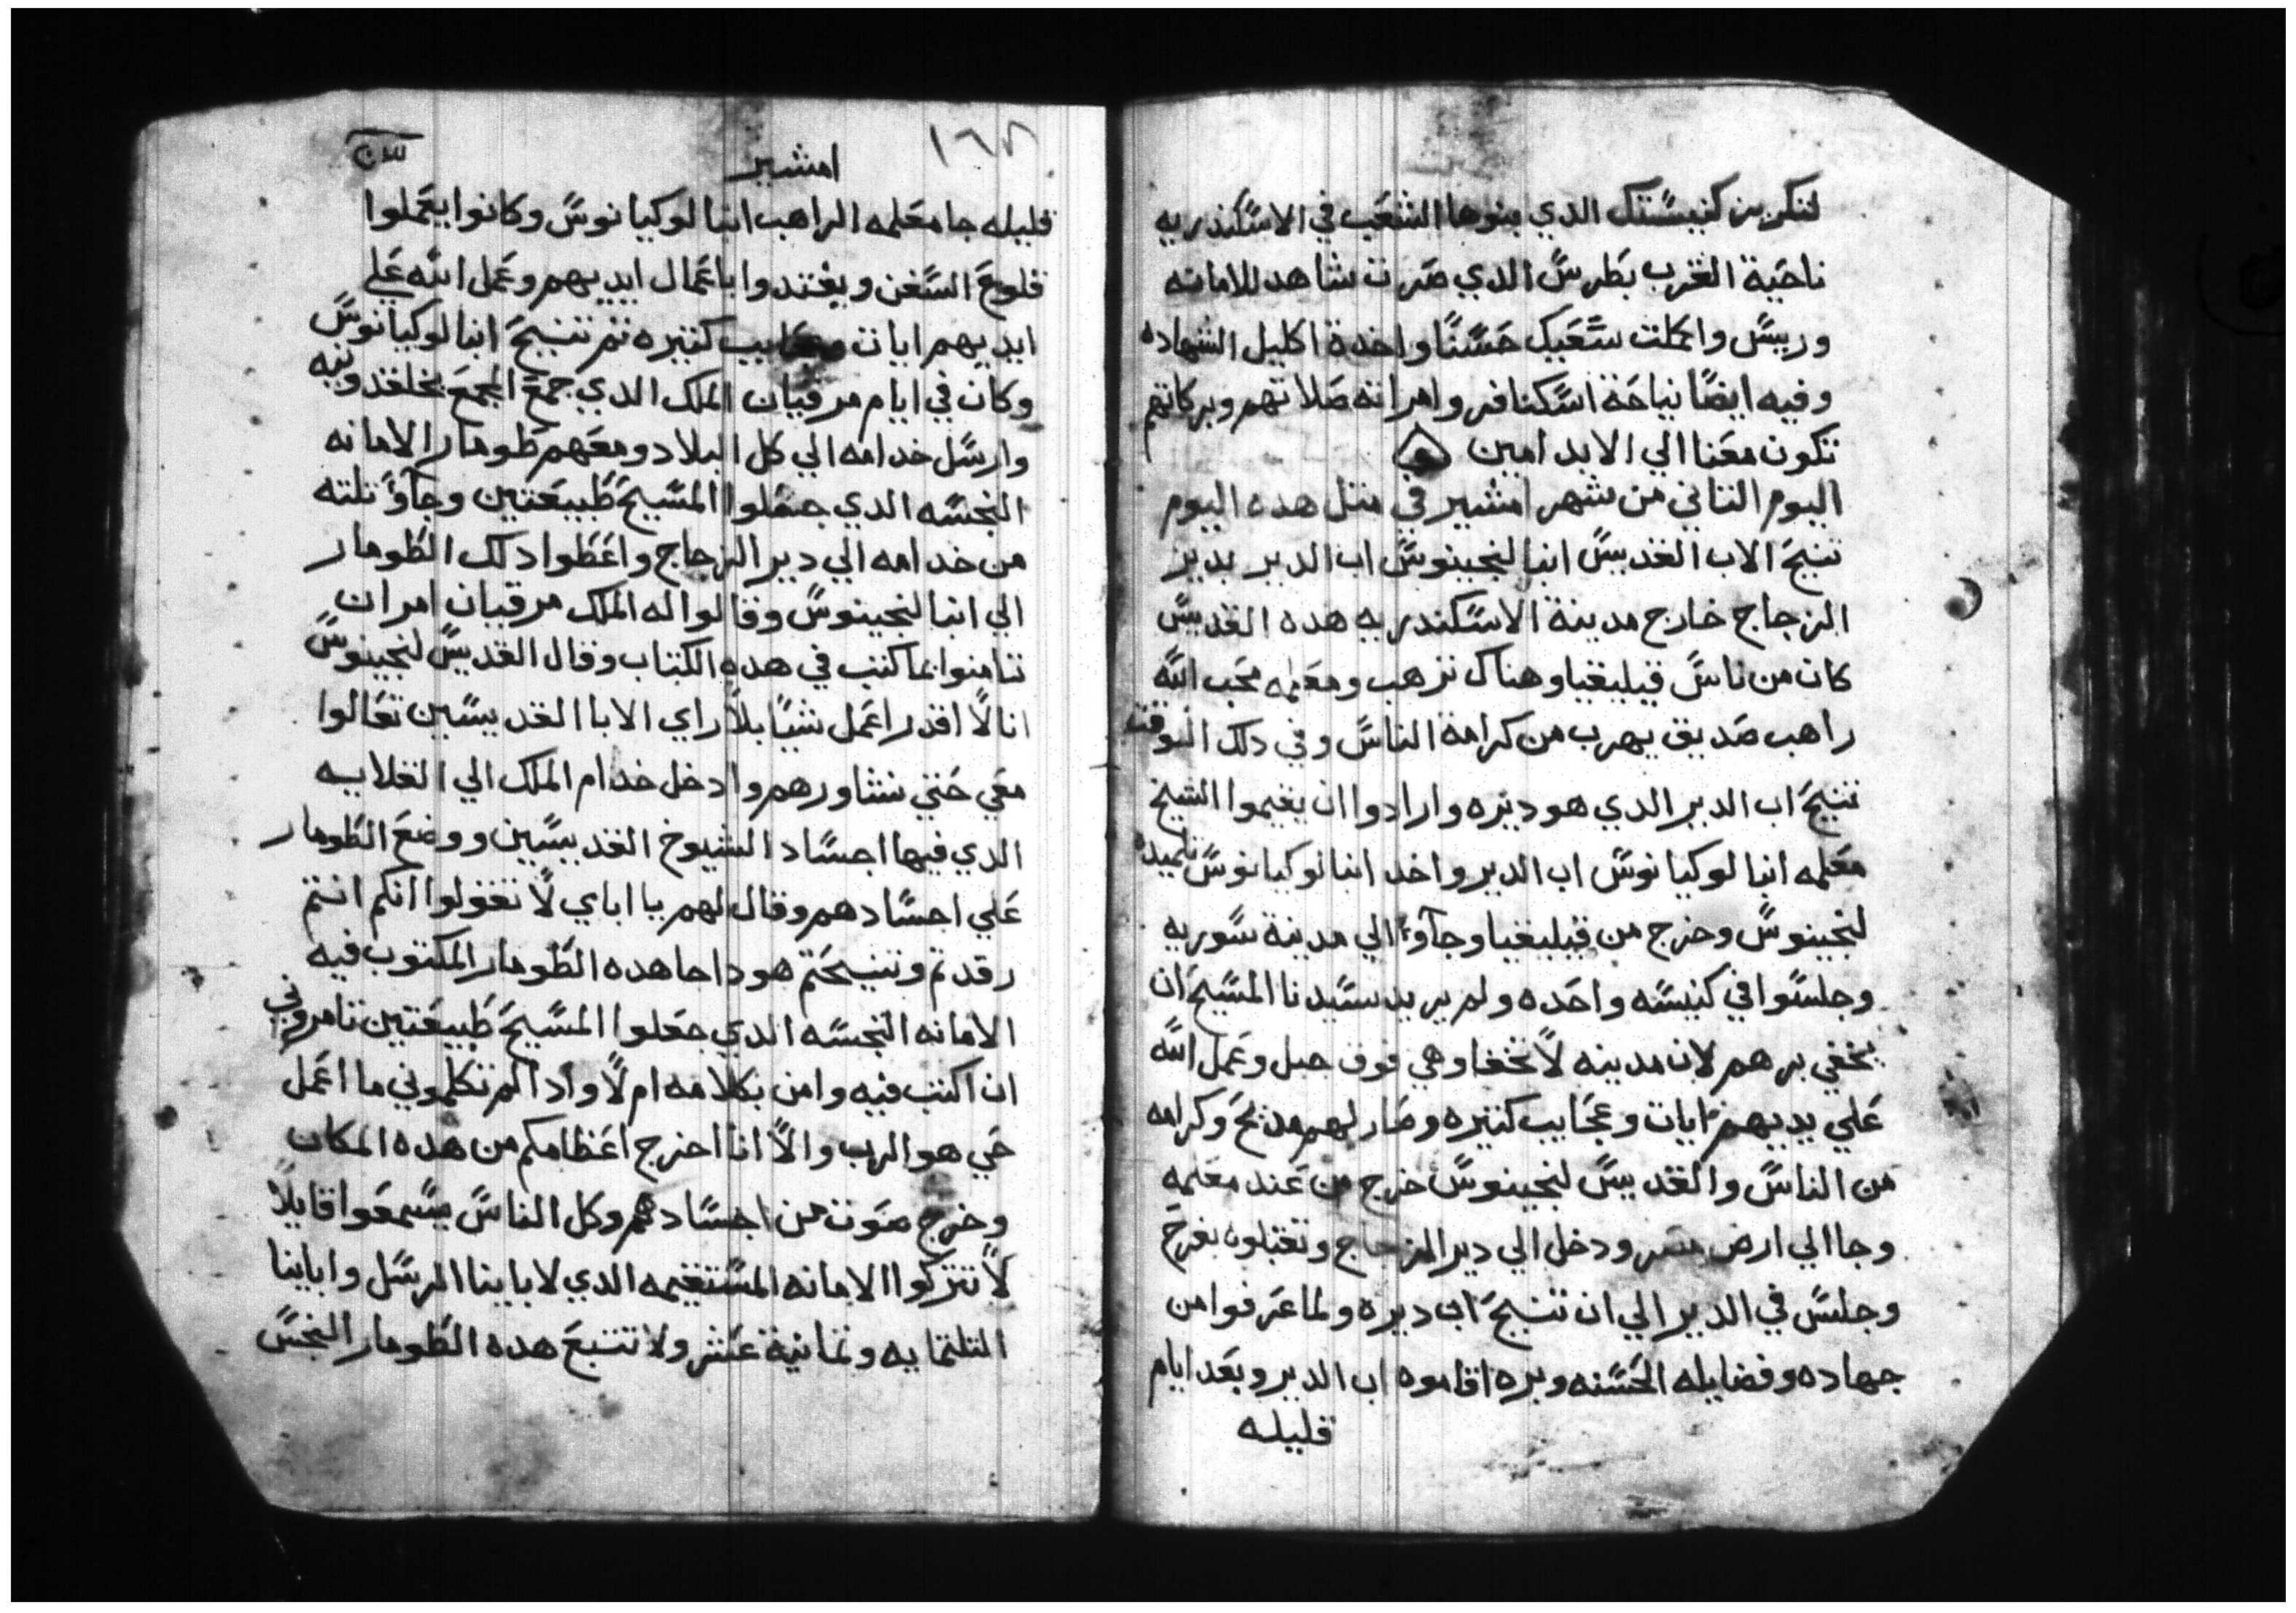 لتكرين كنيستك الدي بنوها الشعب في الاسكندريه
ناحية الغرب بطرس الدي صرت شاهد للامانه
وريس واكملت شعبك حسنا واخدة اكليل الشهاده
وفيه ايضا نياحة اسكنافر وامراته صلاتهم وبركاتهم
تكون معنا الي الابد امين
اليوم التاني من شهر امشير في متل هده اليوم
تنيح الاب القديس انبا لنجينوس اب الدير بدير
الزجاج خارج مدينة الاسكندريه هده القديس
كان من ناس قيليقيا وهناك ترهب ومعلمه محب الله
راهب صديق يهرب من كرامة الناس وفي دلك الوقت
تنيح اب الدير الدي هو ديره وارادوا ان يقيموا الشيخ
معلمه انبا لوكيانوس اب الدير واخد انبا لوكيانوس تلميده
لنجينوس وخرج من قيليقيا وجاؤا الي مدينة سوريه
وجلسوا في كنيسه واحده ولم يريد سيدنا المسيح ان
يخفي برهم لان مدينه لا تخفا وهي فوق جبل وعمل الله
علي يديهم ايات وعجايب كتيره وصار لهم مديح وكرامه
من الناس والقديس لنجينوس خرج من عند معلمه
وجا الي ارض مصر ودخل الي دير الزجاج وتقبلوه بفرح
وجلس في الدير الي ان تنيح اب ديره ولما عرفوا من
جهاده وفضايله الحسنه وبره اقاموه اب الدير وبعد ايام
قليله
١٦٨
امشير
قليله جا معلمه الراهب انبا لوكيانوس وكانوا يعملوا
قلوع السفن ويقتدوا باعمال ايديهم وعمل الله علي
ايديهم ايات وعجايب كتيره تم تنيح انبا لوكيانوس
وكان في ايام مرقيان الملك الدي جمع المجمع بخلقدونيه
وارسل خدامه الي كل البلاد ومعهم طومار الامانه
النجسه الدي جعلوا المسيح طبيعتين وجاؤ تلته
من خدامه الي دير الزجاج واعطوا دلك الطومار
الي انبا لنجينوس وقالوا له الملك مرقيان امر ان
تامنوا بما كتب في هده الكتاب وقال القديس لنجينوس
انا لا اقدر اعمل شيا بلا راي الابا القديسين تعالوا
معي حتي نشاورهم وادخل خدام الملك الي القلايه
الدي فيها اجساد الشيوخ القديسين ووضع الطومار
علي اجسادهم وقال لهم يا اباي لا تقولوا انكم انتم
رقدتم وتنيحتم هودا ها هده الطومار المكتوب فيه
الامانه النجسه الدي جعلوا المسيح طبيعتين تامروني
ان اكتب فيه وامن بكلامه ام لا وادا لم تكلموني ما اعمل
حي هو الرب والا انا اخرج اعظامكم من هده المكان
وخرج صوت من اجسادهم وكل الناس يسمعوا قايلا
لا تتركوا الامانه المستقيمه الدي لابابنا الرسل واباينا
التلتمايه وتمانية عشر ولا تتبع هده الطومار النجس